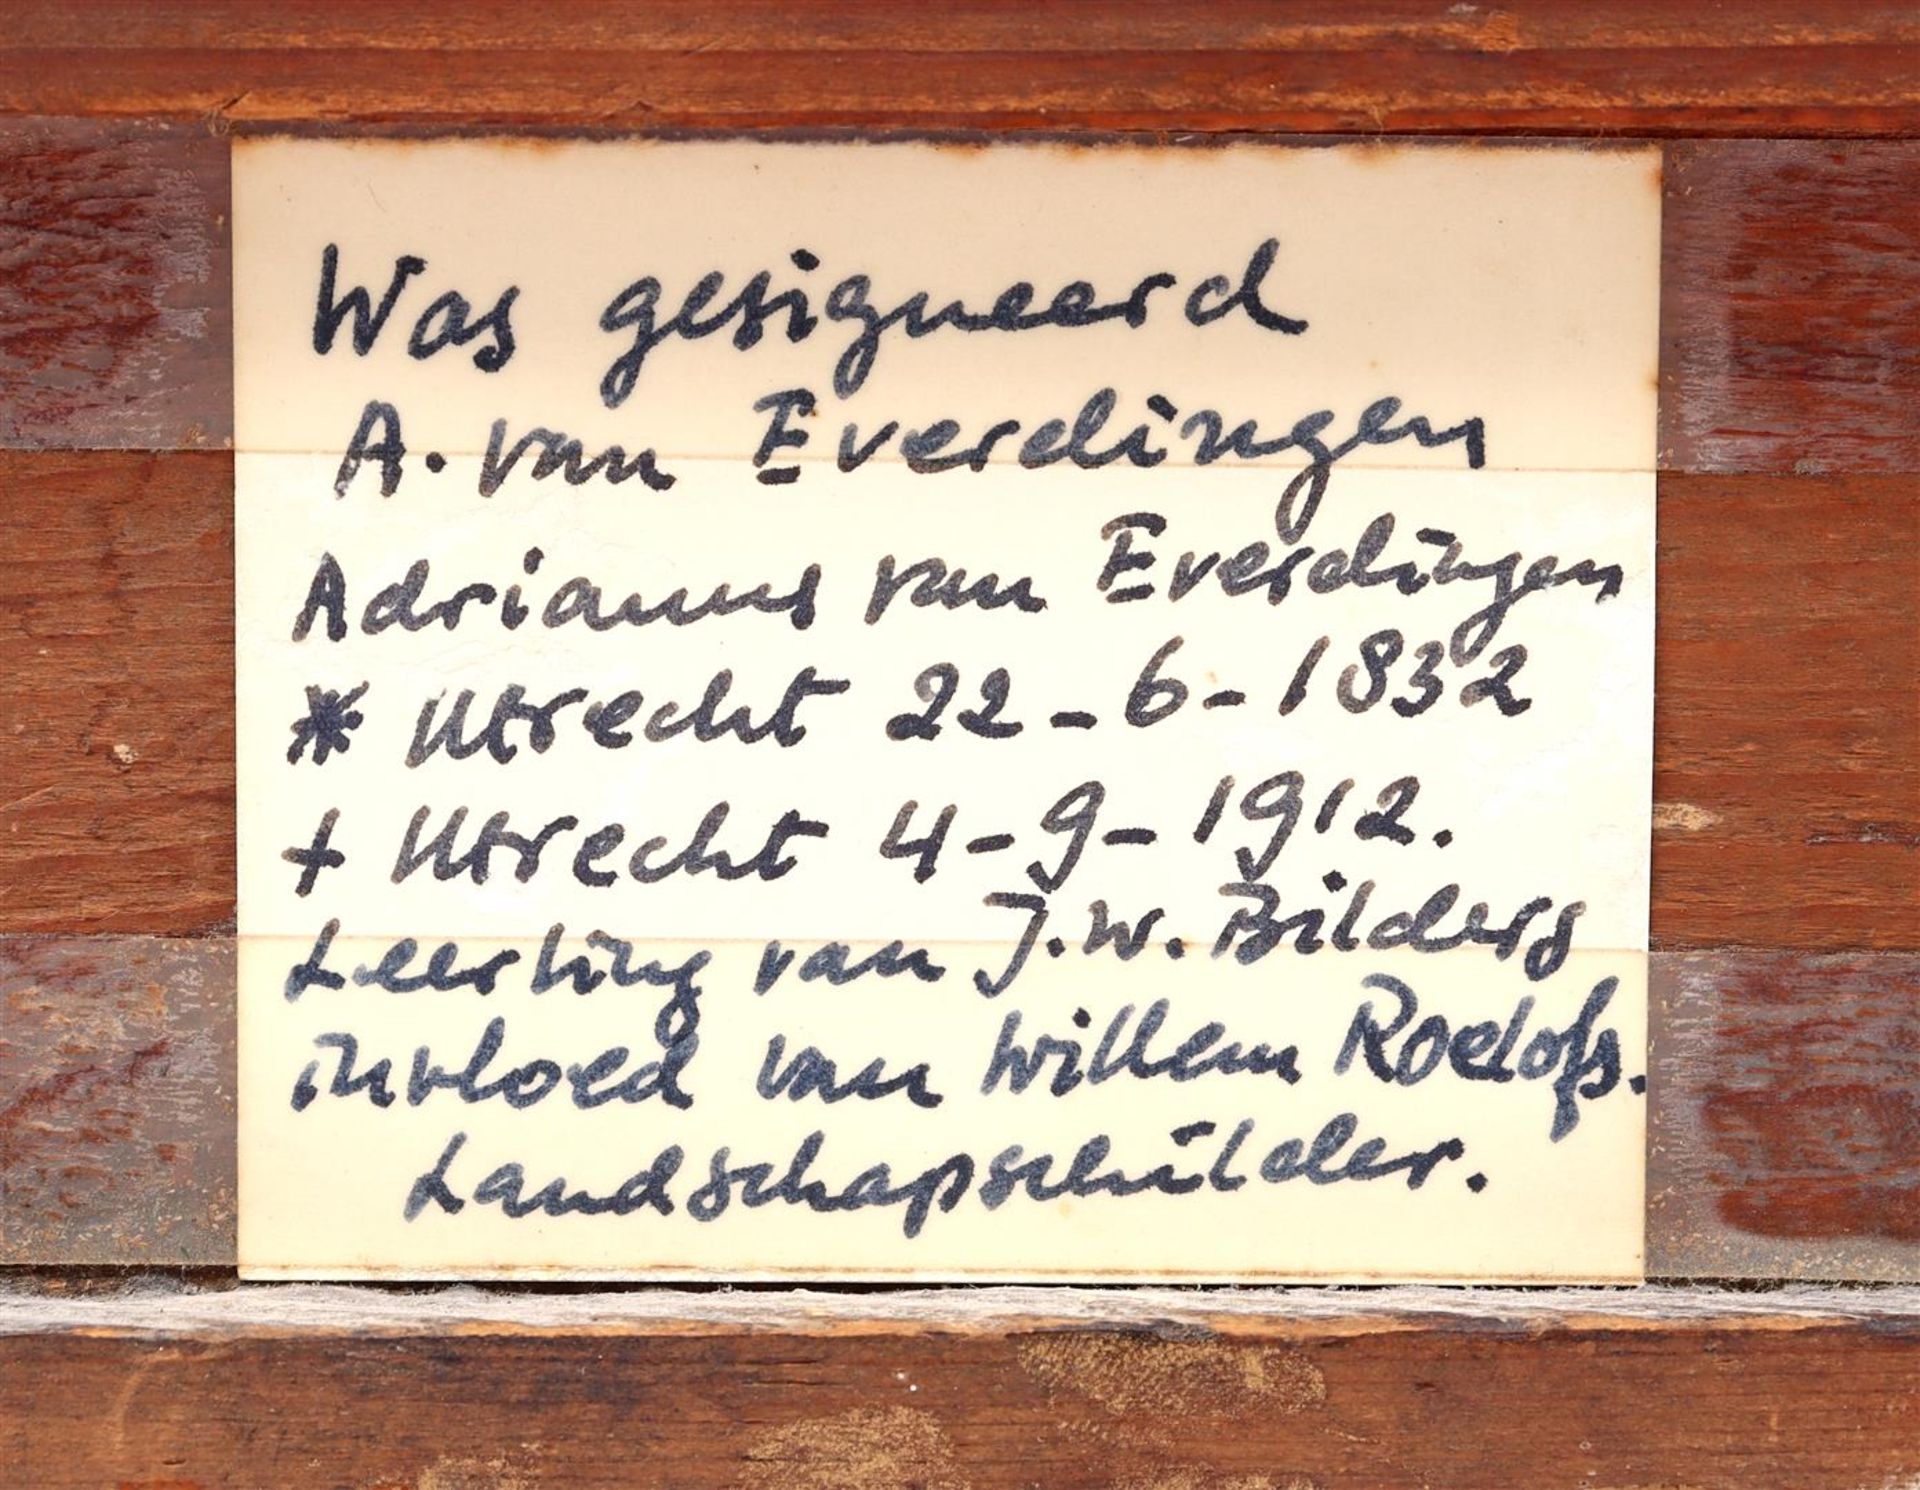 Was gesigneerd
A. van Everdingen
Adrianus van Everdingen
* Utrecht 22-6-1832
+ Utrecht 4-9-1912.
Leerling van J.W. Bilders
invloed van Willem Roelofs.
Landschapschilder.